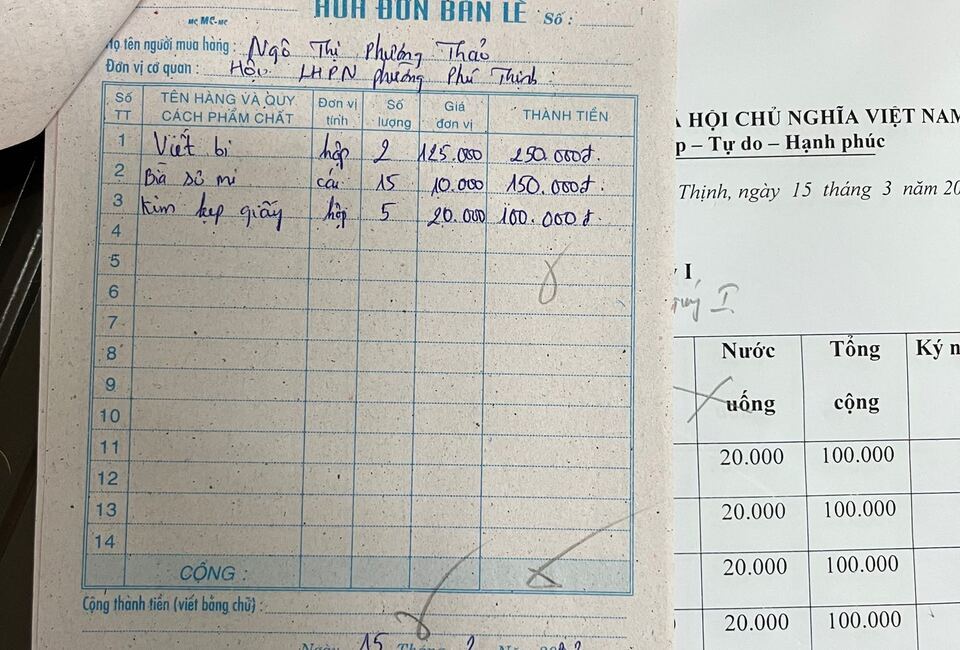 HÓA ĐƠN BÁN LẺ Số :
Họ tên người mua hàng : Ngô Thị Phương Thảo
Đơn vị cơ quan : Hội LHPN phường Phú Thịnh
Số TT TÊN HÀNG VÀ QUY CÁCH PHẨM CHẤT Đơn vị tính Số lượng Giá đơn vị THÀNH TIỀN
1 Viết bi hộp 2 125.000 250.000đ
2 Bìa sơ mi cái 15 10.000 150.000đ
3 Kim kẹp giấy hộp 5 20.000 100.000đ
4
5
6
7
8
9
10
11
12
13
14
CỘNG :
Cộng thành tiền (viết bằng chữ) :
Ngày 15 Tháng Năm
HỘI CHỦ NGHĨA VIỆT NAM
– Tự do – Hạnh phúc
Thịnh, ngày 15 tháng 3 năm 20
I
I
Nước uống Tổng cộng Ký
20.000 100.000
20.000 100.000
20.000 100.000
20.000 100.000